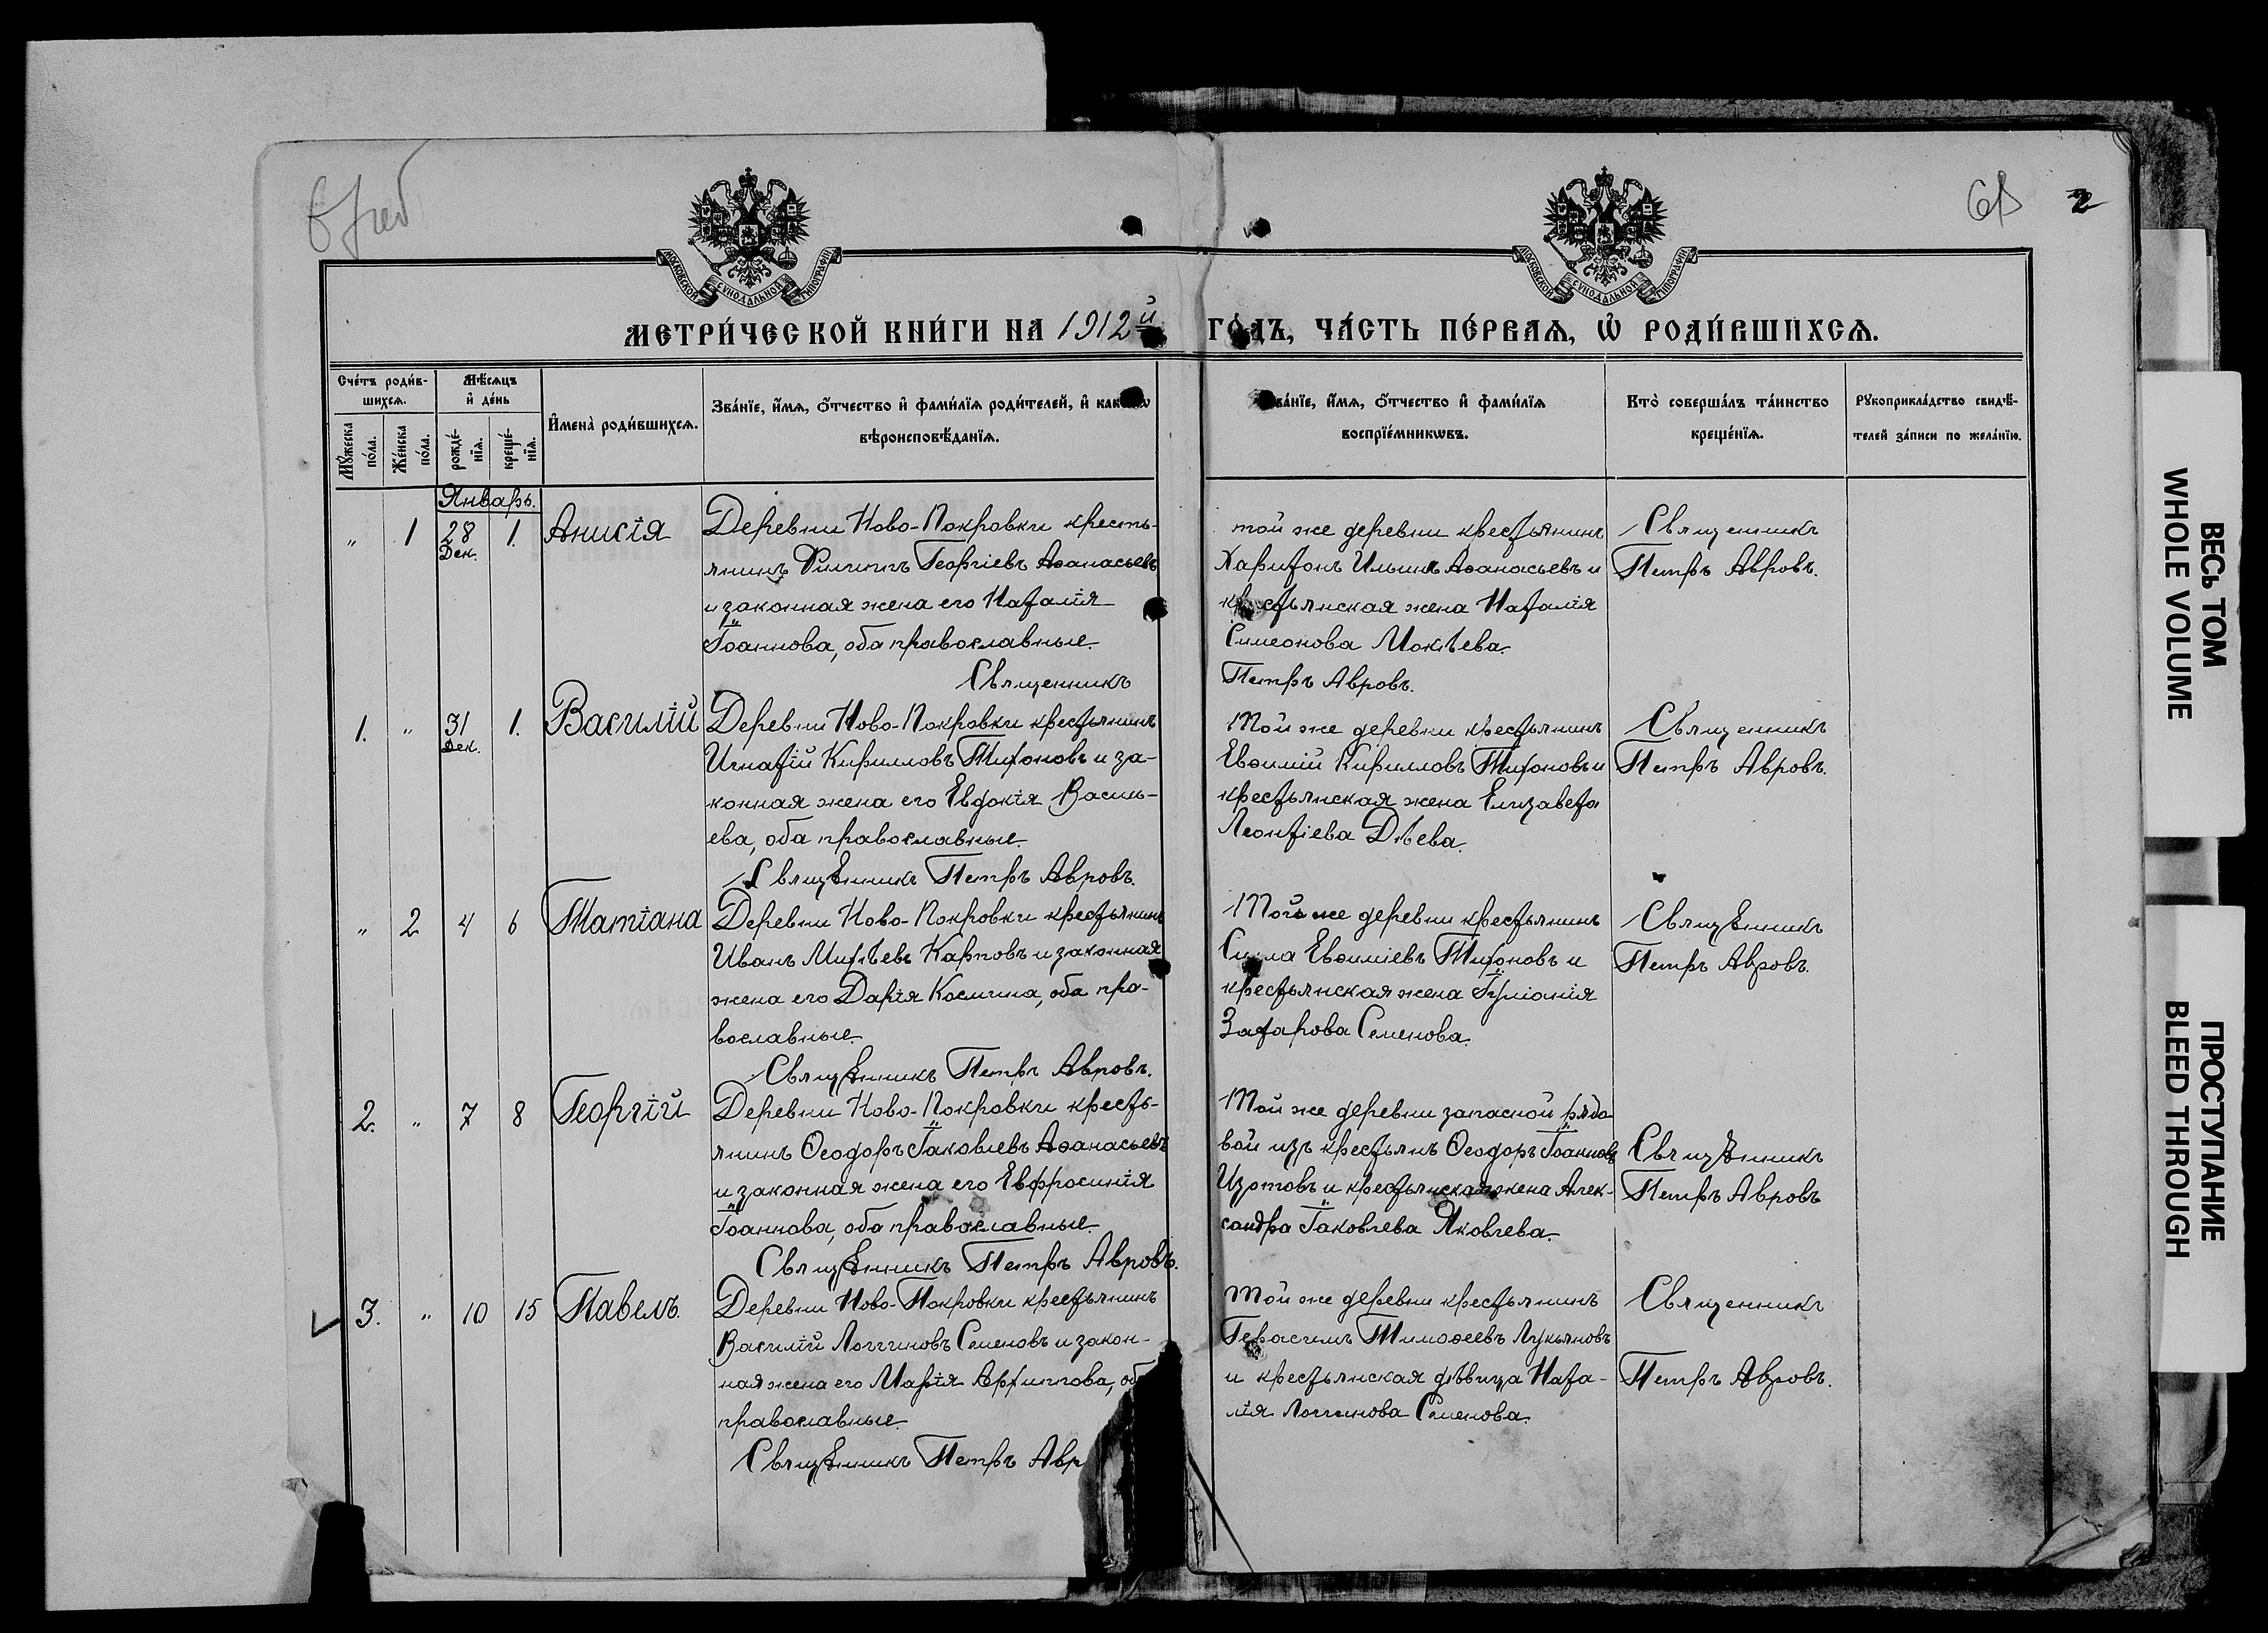 68 2
МОСКОВСКОЙ СѴНОДАЛЬНОЙ ТИПОГРАФІИ
МОСКОВСКОЙ СѴНОДАЛЬНОЙ ТИПОГРАФІИ
МЕТРИ́ЧЕСКОЙ КНИ́ГИ НА 1912й ГО́ДЪ, ЧА́СТЬ ПЕ́РВАѦ, Ѡ РОДИ́ВШИХСѦ.
Сче́тъ роди́в-
шихсѧ.
Мѣ́сѧцъ
и҆ де́нь
Мꙋ́жеска
по́ла.
Же́нска
по́ла.
рожде́-
нїѧ.
креще́-
нїѧ.
И҆мена̀ роди́вшихсѧ.
Зва́нїе, и҆́мѧ, ѻ҆́тчество и҆ фами́лїѧ роди́телей, и҆
вѣроисповѣ́данїѧ.
Зва́нїе, и҆́мѧ, ѻ҆́тчество и҆ фами́лїѧ
воспрїе́мникѡвъ.
Кто̀ соверша́лъ та́инство
креще́нїѧ.
Рꙋкоприкла́дство свидѣ́-
телей за́писи по жела́нїю.
Январь.
„ 1 28 1. Анисія
Дек.
Деревни Ново-Покровки кресть-
янинъ Филиппъ Георгіевъ Аѳанасьевъ
и законная жена его Наталія
Іоаннова, оба православные.
Священникъ
той же деревни крестьянинъ
Харитонъ Ильинъ Аѳанасьевъ и
крестьянская жена Наталія
Симеонова Мокѣева.
Петръ Авровъ.
Священникъ
Петръ Авровъ.
1. „ 31 1. Василій
Дек.
Деревни Ново-Покровки крестьянинъ
Игнатій Кирилловъ Тихоновъ и за-
конная жена его Евдокія Василь-
ева, оба православные.
Священникъ Петръ Авровъ.
Той же деревни крестьянинъ
Евѳимій Кирилловъ Тихоновъ и
крестьянская жена Елизавета
Леонтіева Дѣева.
Священникъ
Петръ Авровъ.
„ 2 4 6 Татіана
Деревни Ново-Покровки крестьянинъ
Иванъ Михѣевъ Карповъ и законная
жена его Дарія Космина, оба пра-
вославные.
Священникъ Петръ Авровъ.
Той же деревни крестьянинъ
Сила Евѳиміевъ Тихоновъ и
крестьянская жена Іуліанія
Захарова Семенова.
Священникъ
Петръ Авровъ.
2. „ 7 8 Георгій
Деревни Ново-Покровки кресть-
янинъ Ѳеодоръ Іаковлевъ Аѳанасьевъ
и законная жена его Евфросинія
Іоаннова, оба православные.
Священникъ Петръ Авровъ.
Той же деревни запасной рядо-
вой изъ крестьянъ Ѳеодоръ Іоанновъ
Изотовъ и крестьянская жена Алек-
сандра Іаковлева Яковлева.
Священникъ
Петръ Авровъ
3. „ 10 15 Павелъ.
Деревни Ново-Покровки крестьянинъ
Василій Логгиновъ Семеновъ и закон-
ная жена его Марія Архиппова, об
православные.
Священникъ Петръ Авр
Той же деревни крестьянинъ
Герасимъ Тимоѳеевъ Лукьяновъ
и крестьянская дѣвица Ната-
лія Логгинова Семенова.
Священникъ
Петръ Авровъ.
ВЕСЬ ТОМ
WHOLE VOLUME
ПРОСТУПАНИЕ
BLEED THROUGH